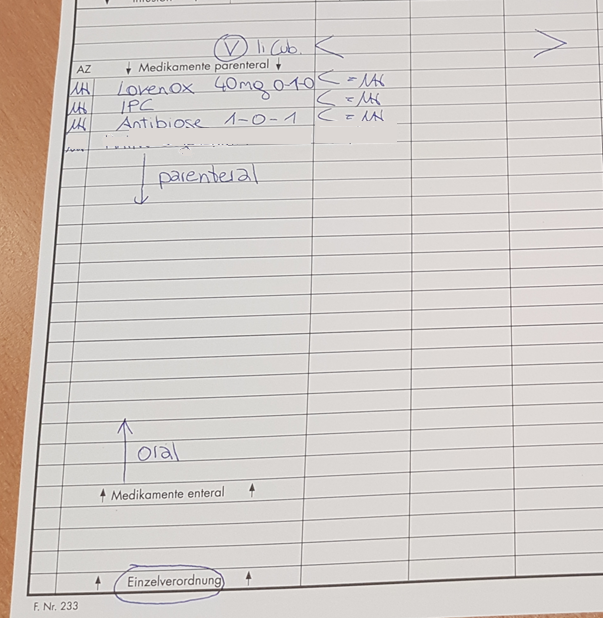 Ⓥ li Cub. <
>
AZ ↓ Medikamente parenteral ↓
Lovenox 40mg 0-1-0 < =
IPC < =
Antibiose 1-0-1 < =
↓ parenteral
↑ oral
↑ Medikamente enteral ↑
↑ Einzelverordnung ↑
F. Nr. 233